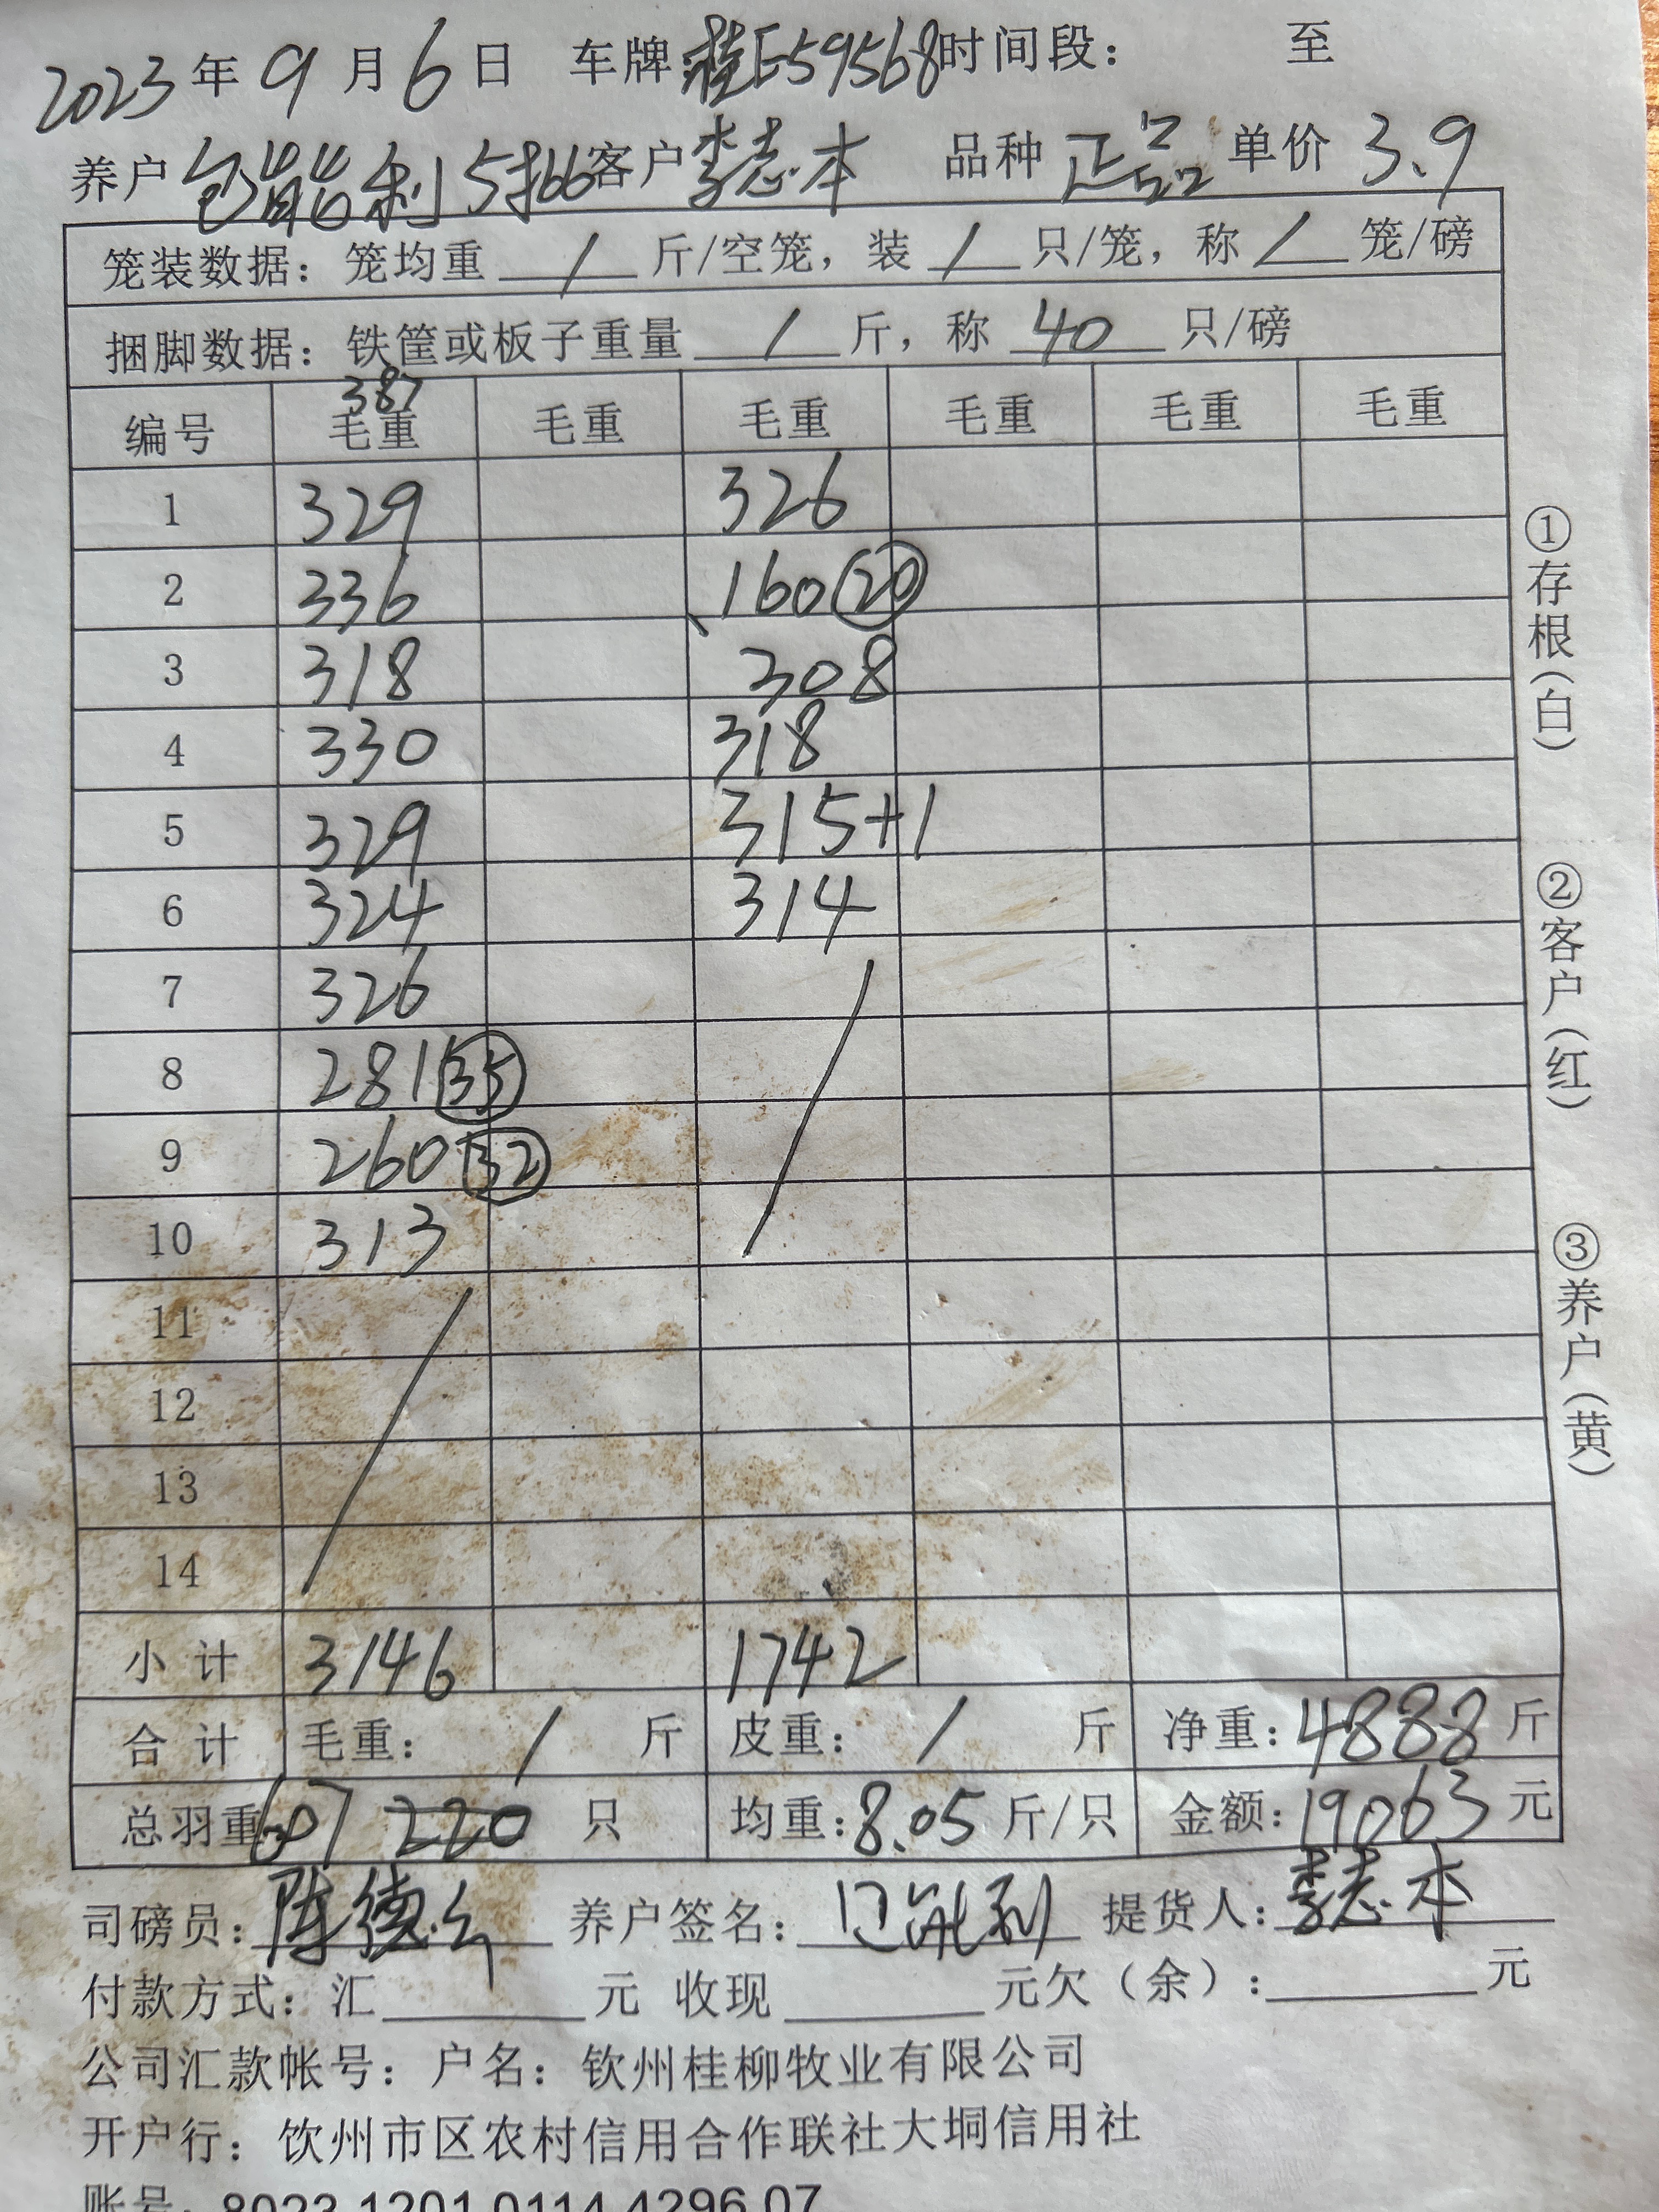 2023年9月6日 车牌 桂E59568 时间段: 至
养户 包能利 5批66 客户 李志本 品种 正品 单价 3.9
笼装数据: 笼均重 / 斤/空笼, 装 / 只/笼, 称 / 笼/磅
捆脚数据: 铁筐或板子重量 / 斤, 称 40 只/磅
387
编号 毛重 毛重 毛重 毛重 毛重 毛重
1 329 326
2 336 160 20
3 318 308
4 330 318
5 329 315+1
6 324 314
7 326
8 281 35
9 260 32
10 313
11
12
13
14
小 计 3146 1742
合 计 毛重: / 斤 皮重: / 斤 净重: 4888 斤
总羽重 607 220 只 均重: 8.05 斤/只 金额: 19063 元
司磅员: 陈德 养户签名: 能利 提货人: 李志本
付款方式: 汇 元 收现 元欠(余): 元
公司汇款帐号: 户名: 钦州桂柳牧业有限公司
开户行: 饮州市区农村信用合作联社大垌信用社
账号: 8023 1201 0114 4296 07
①存根(白)
②客户(红)
③养户(黄)